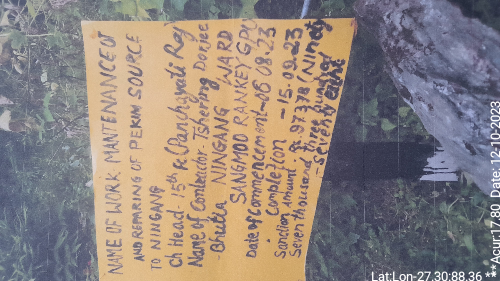 NAME OF WORK MAINTENANCE OF
AND REPARING OF PERIM SOURCE
TO NINGANG
Ch Head - 15th Fc (Panchayati Raj
Name of Contractor - Tshering Dorjee
- Bhutia NINGANG WARD
SANGMOO RANKEY GPU
Date of Commencement - 06.08.23
Completion - 15.09.23
Sanction Amount Rs. 97378/(Ninety
Seven thousand three hundred
- Seventy eight
Lat:Lon-27.30:88.36 *** Acur:17.80 Date: 12-10-2023